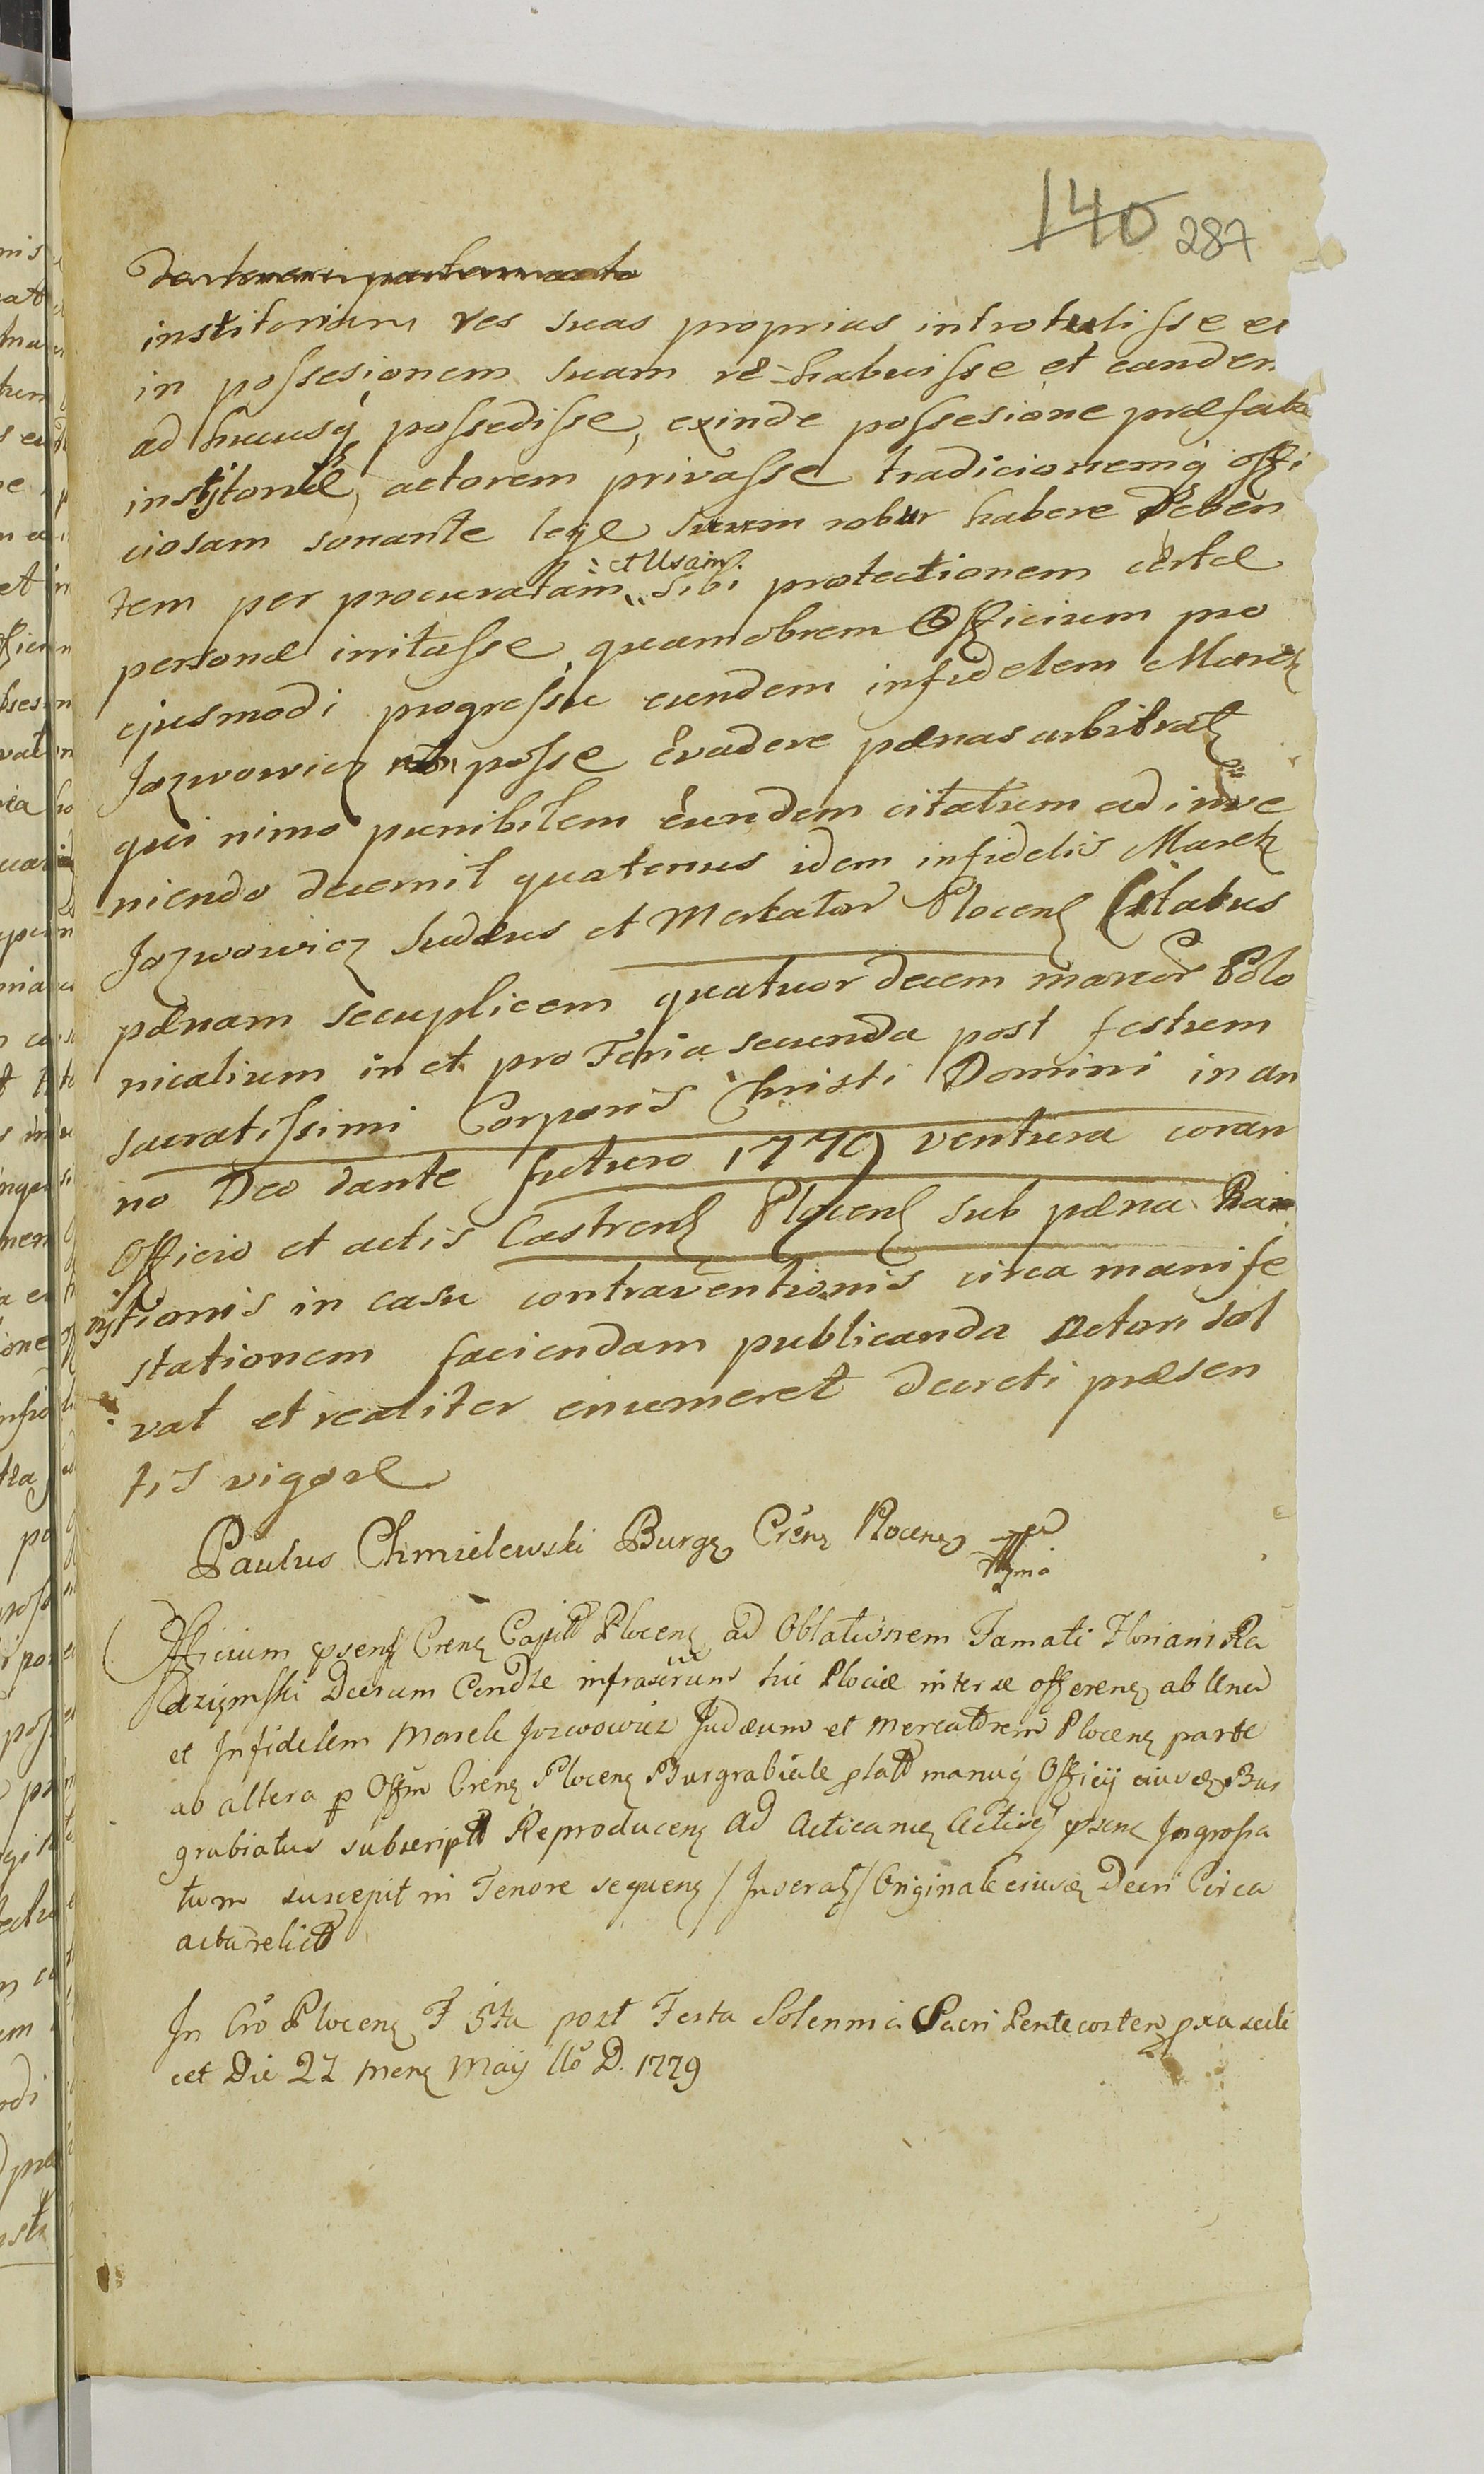 140 287
institorium res suas proprias introtulisse et
in possesionem suam re-habuisse et eandem
ad hucusq possedisse, exinde possesione præfatæ
institoriæ, actorem privasse tradicionemq offi
ciosam sonante lege suum robur habere deben
tem per procuratam :et Usam: sibi protectionem certæ
personæ irritasse, quamobrem Officium pro
ejusmodi progressu eundem infidelem Marek
Jozwowicz non posse Evadere pœnas arbitrat
qui nimo punibilem Eundem citatum ad inve
niendo decernit quatenus idem infidelis Marek
Jozwowicz Judæus et Mercator Plocen Citatus
pœnam secuplicem quatuor decem marcar Polo
nicalium in et pro Feria secunda post festum
sacratissimi Corporis Christi Domini in an
no Deo dante futuro 1779 ventura coram
Officio et actis Castren Plocen sub pœna Ban
nitionis in casu contraventionis circa manife
stationem faciendam publicanda Actori sol
vat et realiter enumeret decreti præsen
tis vigore
Paulus Chmielewski Burg Cren Plocen
Officium psens Cren Capit Plocen ad Oblationem Famati Floriani Ra
dzigmski Decrum Cond infrascrum hic Plociæ inter se offeren ab Una
et Infidelem Marek Jozwowicz Judæum et Mercatorem Plocen parte
ab altera p Offm Cren Plocen Burgrabiale plat manuq Officij eiusd Bur
grabiatus subscript Reproducen ad Acticand Actisq psen Ingrossa
tum suscepit in Tenore sequen / Inserat / Originale eiusd Decri Circa
acta relict
In Cro Plocen F 5ta post Festa Solennia Sacri Pentecosten pxa scili
cet Die 27 Mens Maij Ao D. 1779